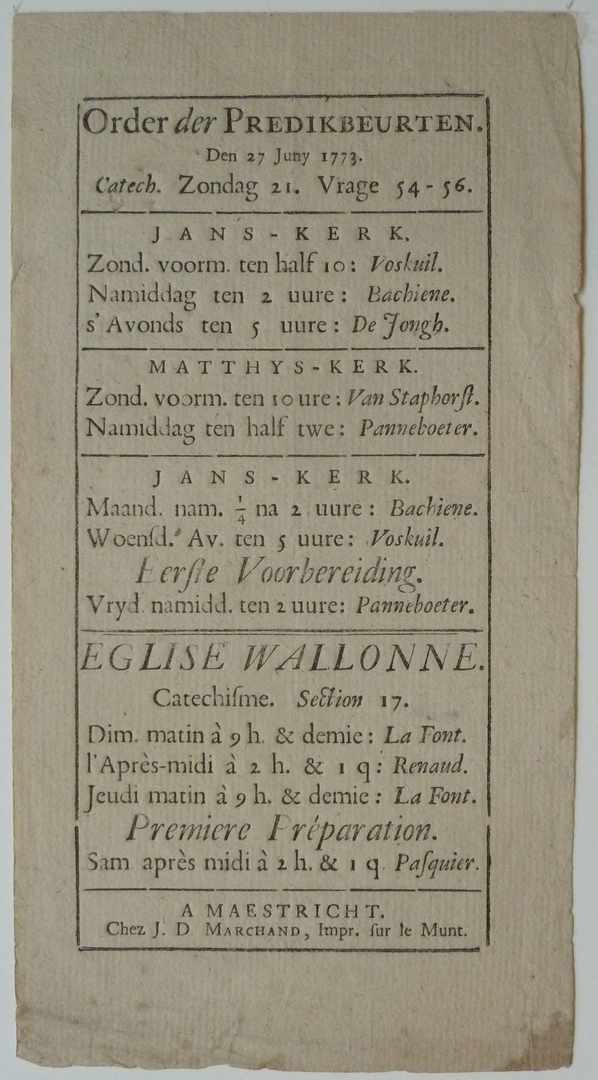 Order der PREDIKBEURTEN.
Den 27 Juny 1773.
Catech. Zondag 21. Vrage 54-56.
JANS-KERK.
Zond. voorm. ten half 10: Voskuil.
Namiddag ten 2 uure: Bachiene.
s' Avonds ten 5 uure: De Jongh.
MATTHYS-KERK.
Zond. voorm. ten 10 ure: Van Staphorſt.
Namiddag ten half twe: Panneboeter.
JANS-KERK.
Maand. nam. ¼ na 2 uure: Bachiene.
Woenſd. Av. ten 5 uure: Voskuil.
Eerſte Voorbereiding.
Vryd. namidd. ten 2 uure: Panneboeter.
EGLISE WALLONNE.
Catechiſme. Section 17.
Dim. matin à 9 h. & demie: La Font.
l'Après-midi à 2 h. & 1 q: Renaud.
Jeudi matin à 9 h. & demie: La Font.
Premiere Préparation.
Sam après midi à 2 h. & 1 q. Paſquier.
A MAESTRICHT.
Chez J. D MARCHAND, Impr. ſur le Munt.